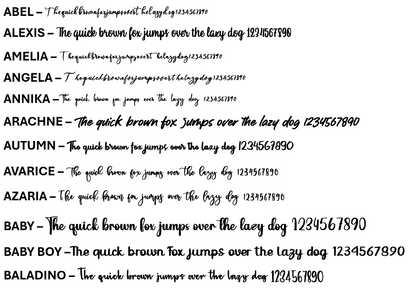 ABEL – Thequickbrownfoxjumpsoverthelazydog1234567890
ALEXIS – The quick brown fox jumps over the lazy dog 1234567890
AMELIA – Thequickbrownfoxjumpsoverthelazydog1234567890
ANGELA – Thequickbrownfoxjumpsoverthelazydog1234567890
ANNIKA – The quick brown fox jumps over the lazy dog 1234567890
ARACHNE – The quick brown fox jumps over the lazy dog 1234567890
AUTUMN – The quick brown fox jumps over the lazy dog 1234567890
AVARICE – The quick brown fox jumps over the lazy dog 1234567890
AZARIA – The quick brown fox jumps over the lazy dog 1234567890
BABY – The quick brown fox jumps over the lazy dog 1234567890
BABY BOY –The quick brown fox jumps over the lazy dog 1234567890
BALADINO – The quick brown fox jumps over the lazy dog 1234567890